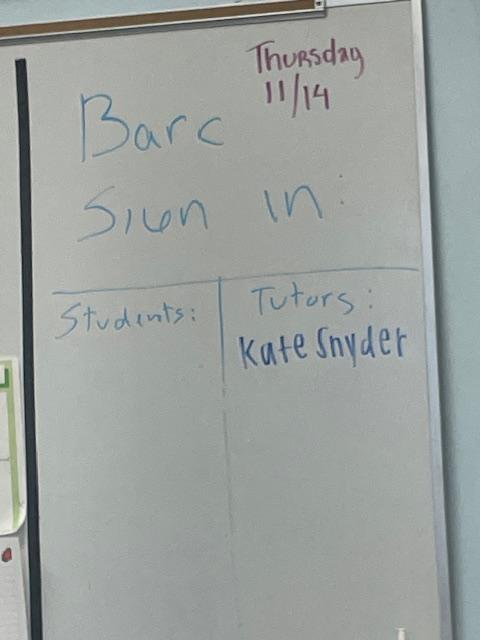 Thursday
11/14
Barc
Sign in:
Students:
Tutors:
Kate Snyder